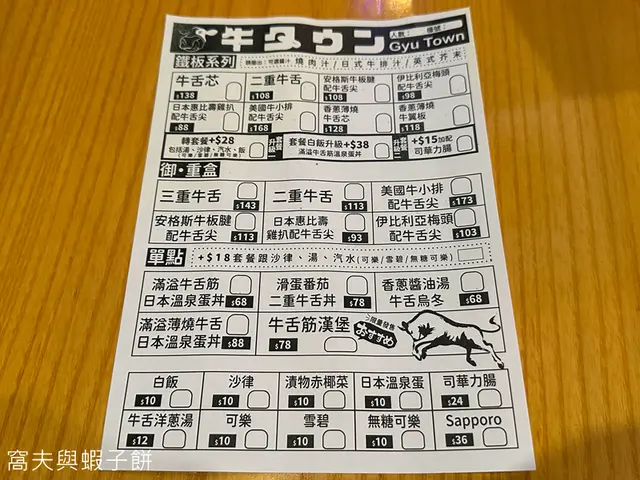 牛タウン
人數： 檯號：
Gyu Town
鐵板系列
燒肉汁/日式牛排汁/英式芥末
牛舌芯
$138
二重牛舌
$108
安格斯牛板腱
配牛舌尖
$108
伊比利亞梅頭
配牛舌尖
$98
日本惠比壽雞扒
配牛舌尖
$88
美國牛小排
配牛舌尖
$168
香蔥薄燒
牛舌芯
$128
香蔥薄燒
牛翼板
$118
轉套餐+$28
包括湯、沙律、汽水、飯
(可樂/雪碧/無糖可樂)
套餐升級一
套餐白飯升級+$38
滿溢牛舌筋溫泉蛋丼
套餐升級二
+$15加配
司華力腸
御·重盒
三重牛舌
$143
二重牛舌
$113
美國牛小排
配牛舌尖
$173
安格斯牛板腱
配牛舌尖
$113
日本惠比壽
雞扒配牛舌尖
$93
伊比利亞梅頭
配牛舌尖
$103
單點
+$18套餐跟沙律、湯、汽水(可樂/雪碧/無糖可樂)
滿溢牛舌筋
日本溫泉蛋丼
$68
滑蛋番茄
二重牛舌丼
$78
香蔥醬油湯
牛舌烏冬
$68
滿溢薄燒牛舌
日本溫泉蛋丼
$88
牛舌筋漢堡
$78
限量發售
おすすめ
白飯
$10
沙律
$10
漬物赤椰菜
$10
日本溫泉蛋
$10
司華力腸
$24
牛舌洋蔥湯
$12
可樂
$10
雪碧
$10
無糖可樂
$10
Sapporo
$36
窩夫與蝦子餅